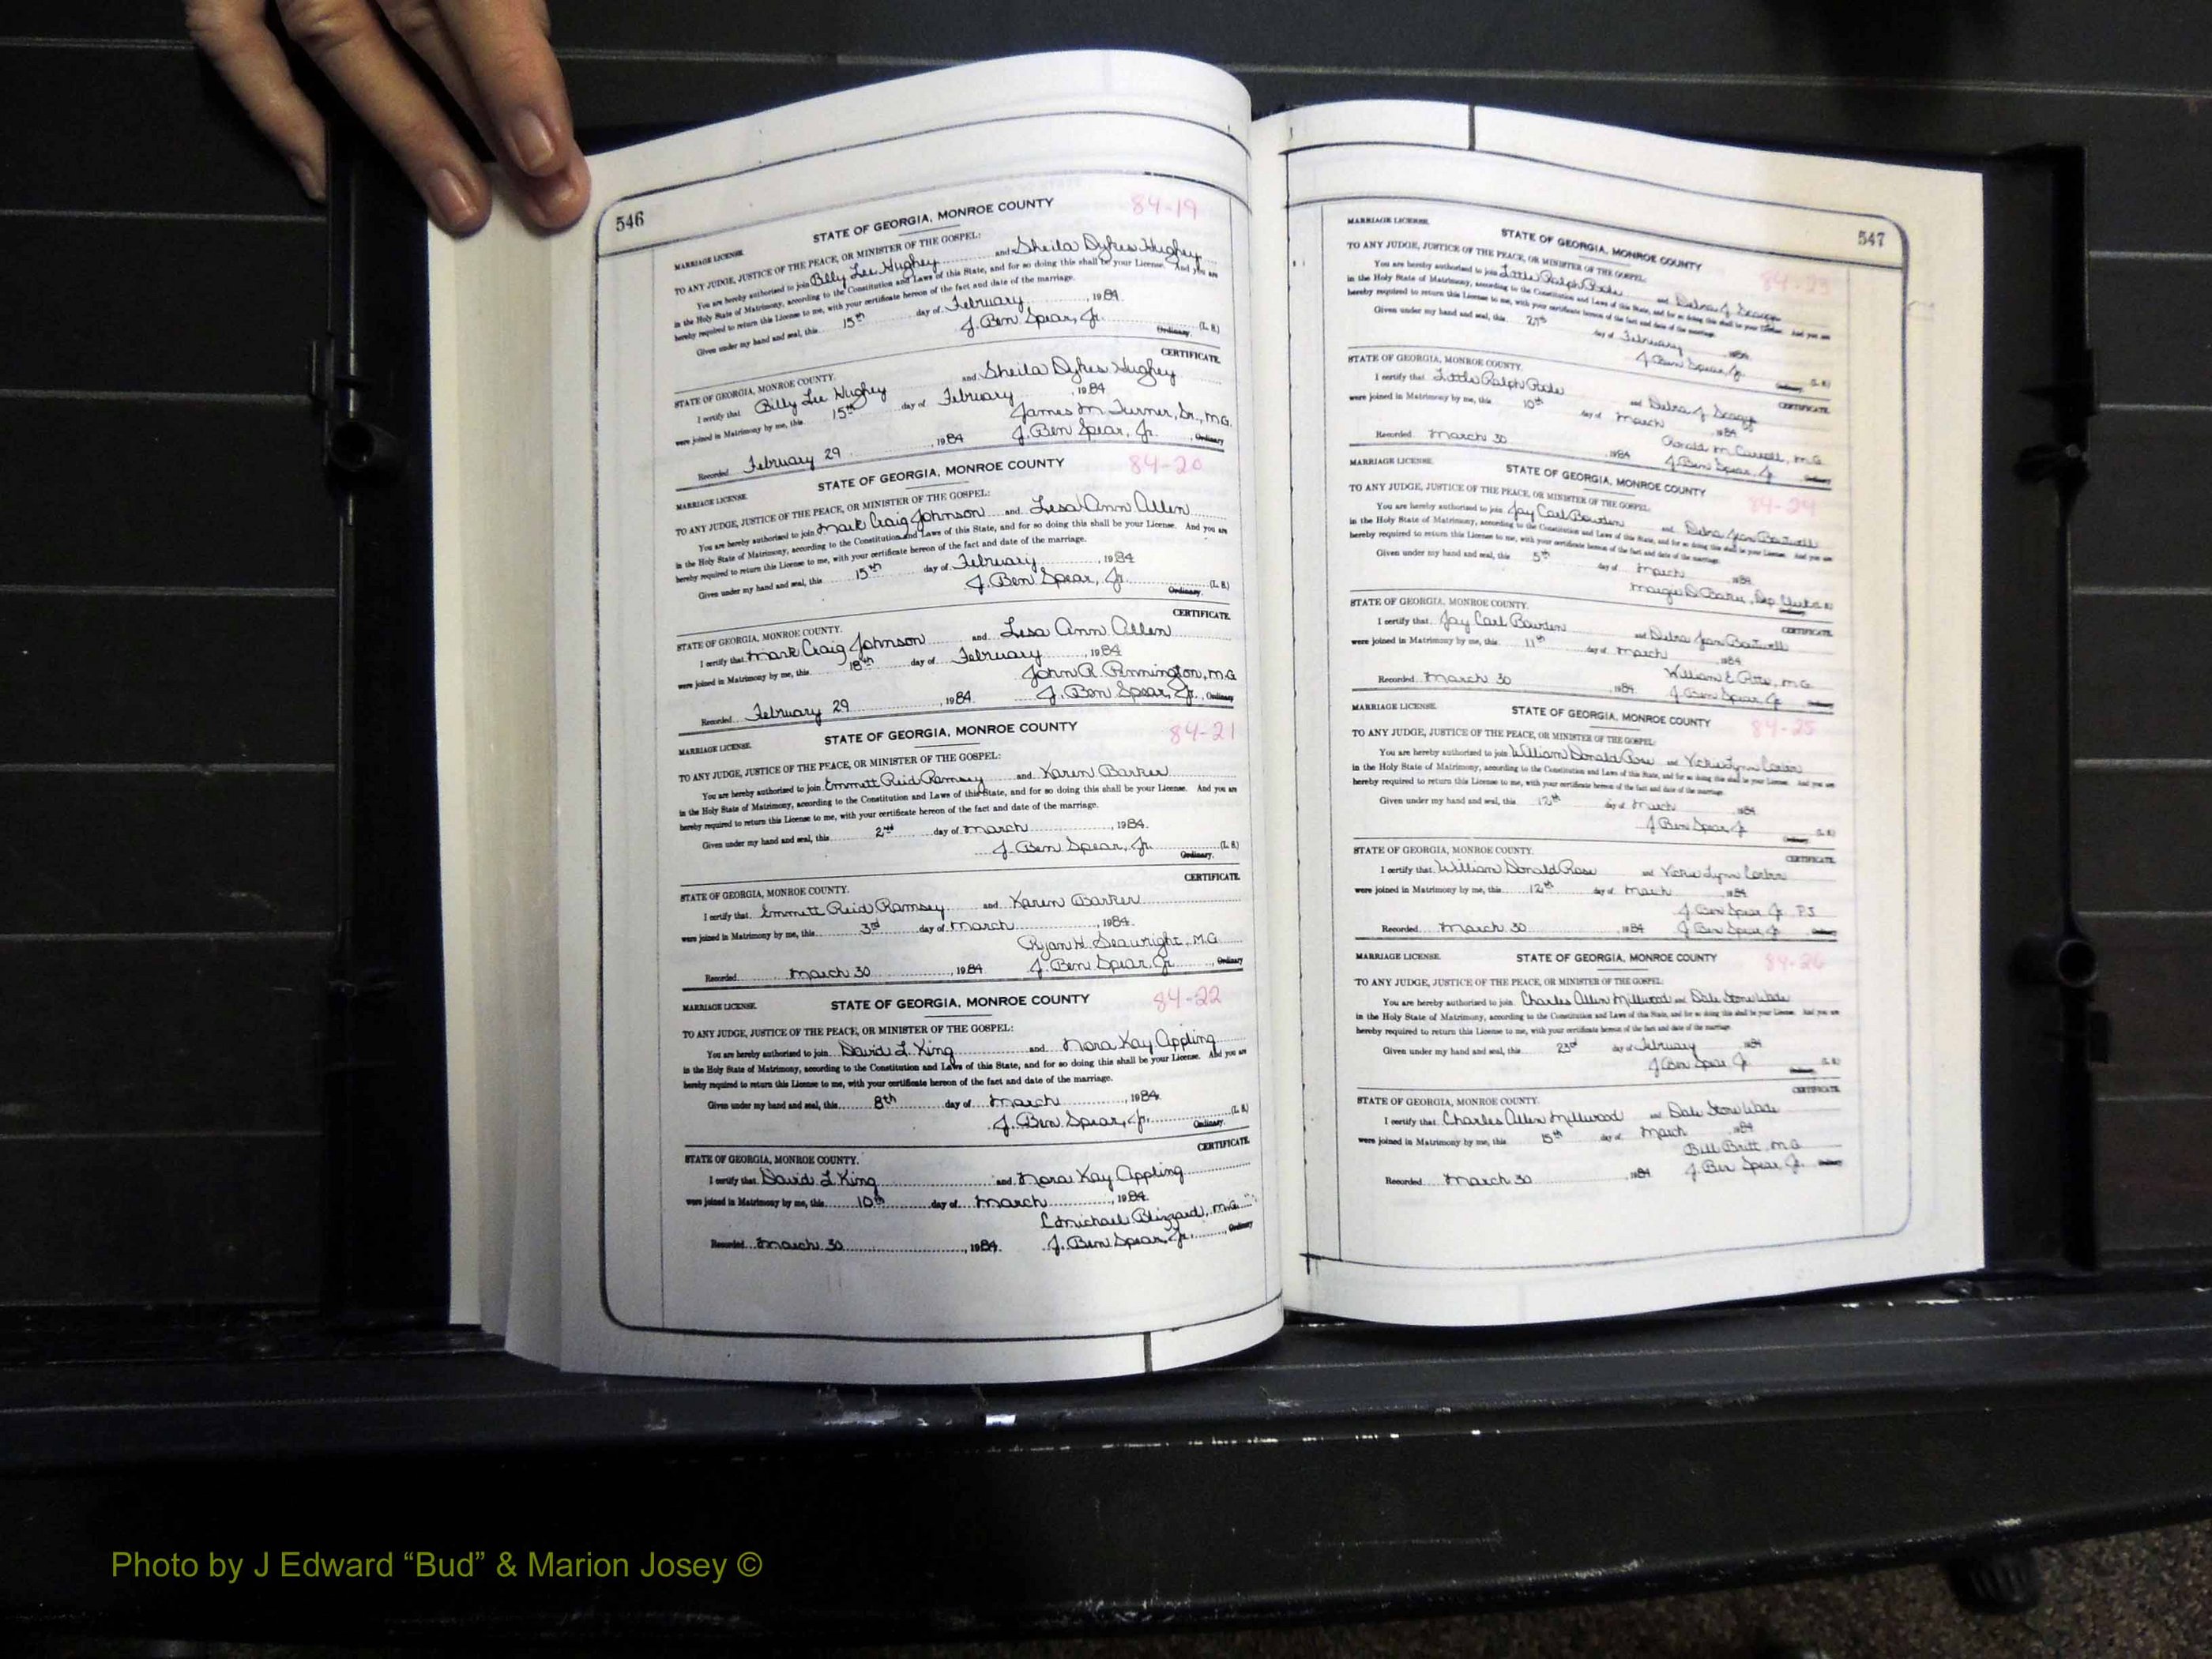 546
84-19
STATE OF GEORGIA, MONROE COUNTY
MARRIAGE LICENSE.
TO ANY JUDGE, JUSTICE OF THE PEACE, OR MINISTER OF THE GOSPEL:
You are hereby authorized to join Billy Lee Hughey and Sheila Dykes Hughey
in the Holy State of Matrimony, according to the Constitution and Laws of this State, and for so doing this shall be your License. And you are
hereby required to return this License to me, with your certificate hereon of the fact and date of the marriage.
Given under my hand and seal, this 15th day of February, 1984.
J. Ben Spear, Jr. (L. S.)
Ordinary.
CERTIFICATE.
STATE OF GEORGIA, MONROE COUNTY.
I certify that Billy Lee Hughey and Sheila Dykes Hughey
were joined in Matrimony by me, this 15th day of February, 1984
James M. Turner, Sr., M.G.
Recorded February 29, 1984 J. Ben Spear, Jr., Ordinary
84-20
MARRIAGE LICENSE. STATE OF GEORGIA, MONROE COUNTY
TO ANY JUDGE, JUSTICE OF THE PEACE, OR MINISTER OF THE GOSPEL:
You are hereby authorized to join Mark Craig Johnson and Lesa Ann Allen
in the Holy State of Matrimony, according to the Constitution and Laws of this State, and for so doing this shall be your License. And you are
hereby required to return this License to me, with your certificate hereon of the fact and date of the marriage.
Given under my hand and seal, this 15th day of February, 1984
J. Ben Spear, Jr. (L. S.)
Ordinary.
CERTIFICATE.
STATE OF GEORGIA, MONROE COUNTY.
I certify that Mark Craig Johnson and Lesa Ann Allen
were joined in Matrimony by me, this 18th day of February, 1984
John R. Pennington, M.G.
Recorded February 29, 1984. J. Ben Spear, Jr., Ordinary
84-21
MARRIAGE LICENSE. STATE OF GEORGIA, MONROE COUNTY
TO ANY JUDGE, JUSTICE OF THE PEACE, OR MINISTER OF THE GOSPEL:
You are hereby authorized to join Emmett Reid Ramsey and Karen Barker
in the Holy State of Matrimony, according to the Constitution and Laws of this State, and for so doing this shall be your License. And you are
hereby required to return this License to me, with your certificate hereon of the fact and date of the marriage.
Given under my hand and seal, this 2nd day of March, 1984.
J. Ben Spear, Jr. (L. S.)
Ordinary.
CERTIFICATE.
STATE OF GEORGIA, MONROE COUNTY.
I certify that Emmett Reid Ramsey and Karen Barker
were joined in Matrimony by me, this 3rd day of March, 1984.
Ryan H. Seawright, M.G.
Recorded March 30, 1984 J. Ben Spear, Jr., Ordinary
84-22
MARRIAGE LICENSE. STATE OF GEORGIA, MONROE COUNTY
TO ANY JUDGE, JUSTICE OF THE PEACE, OR MINISTER OF THE GOSPEL:
You are hereby authorized to join David L. King and Nora Kay Appling
in the Holy State of Matrimony, according to the Constitution and Laws of this State, and for so doing this shall be your License. And you are
hereby required to return this License to me, with your certificate hereon of the fact and date of the marriage.
Given under my hand and seal, this 8th day of March, 1984.
J. Ben Spear, Jr. (L. S.)
Ordinary.
CERTIFICATE
STATE OF GEORGIA, MONROE COUNTY.
I certify that David L King and Nora Kay Appling
were joined in Matrimony by me, this 10th day of March, 1984.
Michael Blizzard, M.G.
Recorded March 30, 1984. J. Ben Spear, Jr., Ordinary
547
MARRIAGE LICENSE. STATE OF GEORGIA, MONROE COUNTY
84-23
TO ANY JUDGE, JUSTICE OF THE PEACE, OR MINISTER OF THE GOSPEL:
You are hereby authorized to join Little Ralph and Debra J.
in the Holy State of Matrimony, according to the Constitution and Laws of this State, and for so doing this shall be your License. And you are
hereby required to return this License to me, with your certificate hereon of the fact and date of the marriage.
Given under my hand and seal, this day of February, 1984
J. Ben Spear, Jr. (L. S.)
Ordinary.
CERTIFICATE.
STATE OF GEORGIA, MONROE COUNTY.
I certify that Little Ralph and Debra J.
were joined in Matrimony by me, this 10th day of March, 1984
Ronald M. Carroll, M.G.
Recorded March 30, 1984 J. Ben Spear, Jr. Ordinary
84-24
MARRIAGE LICENSE. STATE OF GEORGIA, MONROE COUNTY
TO ANY JUDGE, JUSTICE OF THE PEACE, OR MINISTER OF THE GOSPEL:
You are hereby authorized to join Jay Carl Bowden and Debra Jean
in the Holy State of Matrimony, according to the Constitution and Laws of this State, and for so doing this shall be your License. And you are
hereby required to return this License to me, with your certificate hereon of the fact and date of the marriage.
Given under my hand and seal, this 5th day of March, 1984
Margie D. Dep. Clerk
Ordinary.
CERTIFICATE.
STATE OF GEORGIA, MONROE COUNTY.
I certify that Jay Carl Bowden and Debra Jean
were joined in Matrimony by me, this 11th day of March, 1984
William E. M.G.
Recorded March 30, 1984 J. Ben Spear Jr Ordinary
84-25
MARRIAGE LICENSE. STATE OF GEORGIA, MONROE COUNTY
TO ANY JUDGE, JUSTICE OF THE PEACE, OR MINISTER OF THE GOSPEL:
You are hereby authorized to join William Donald Rose and Vickie Lynn Carter
in the Holy State of Matrimony, according to the Constitution and Laws of this State, and for so doing this shall be your License. And you are
hereby required to return this License to me, with your certificate hereon of the fact and date of the marriage.
Given under my hand and seal, this 12th day of March, 1984
J Ben Spear Jr (L. S.)
Ordinary.
CERTIFICATE.
STATE OF GEORGIA, MONROE COUNTY.
I certify that William Donald Rose and Vickie Lynn Carter
were joined in Matrimony by me, this 12th day of March, 1984
J. Ben Spear Jr P.J.
Recorded March 30, 1984 J. Ben Spear Jr Ordinary
84-26
MARRIAGE LICENSE. STATE OF GEORGIA, MONROE COUNTY
TO ANY JUDGE, JUSTICE OF THE PEACE, OR MINISTER OF THE GOSPEL:
You are hereby authorized to join Charles Allen Millwood and Dale Stone Wade
in the Holy State of Matrimony, according to the Constitution and Laws of this State, and for so doing this shall be your License. And you are
hereby required to return this License to me, with your certificate hereon of the fact and date of the marriage.
Given under my hand and seal, this 23rd day of February, 1984
J Ben Spear Jr (L. S.)
Ordinary.
CERTIFICATE.
STATE OF GEORGIA, MONROE COUNTY.
I certify that Charles Allen Millwood and Dale Stone Wade
were joined in Matrimony by me, this 15th day of March, 1984
Bill Britt, M.G.
Recorded March 30, 1984 J. Ben Spear Jr. Ordinary
Photo by J Edward “Bud” & Marion Josey ©